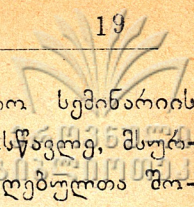 19
სემინარიის
სწავლე, მსურ-
ღებულთა მო-